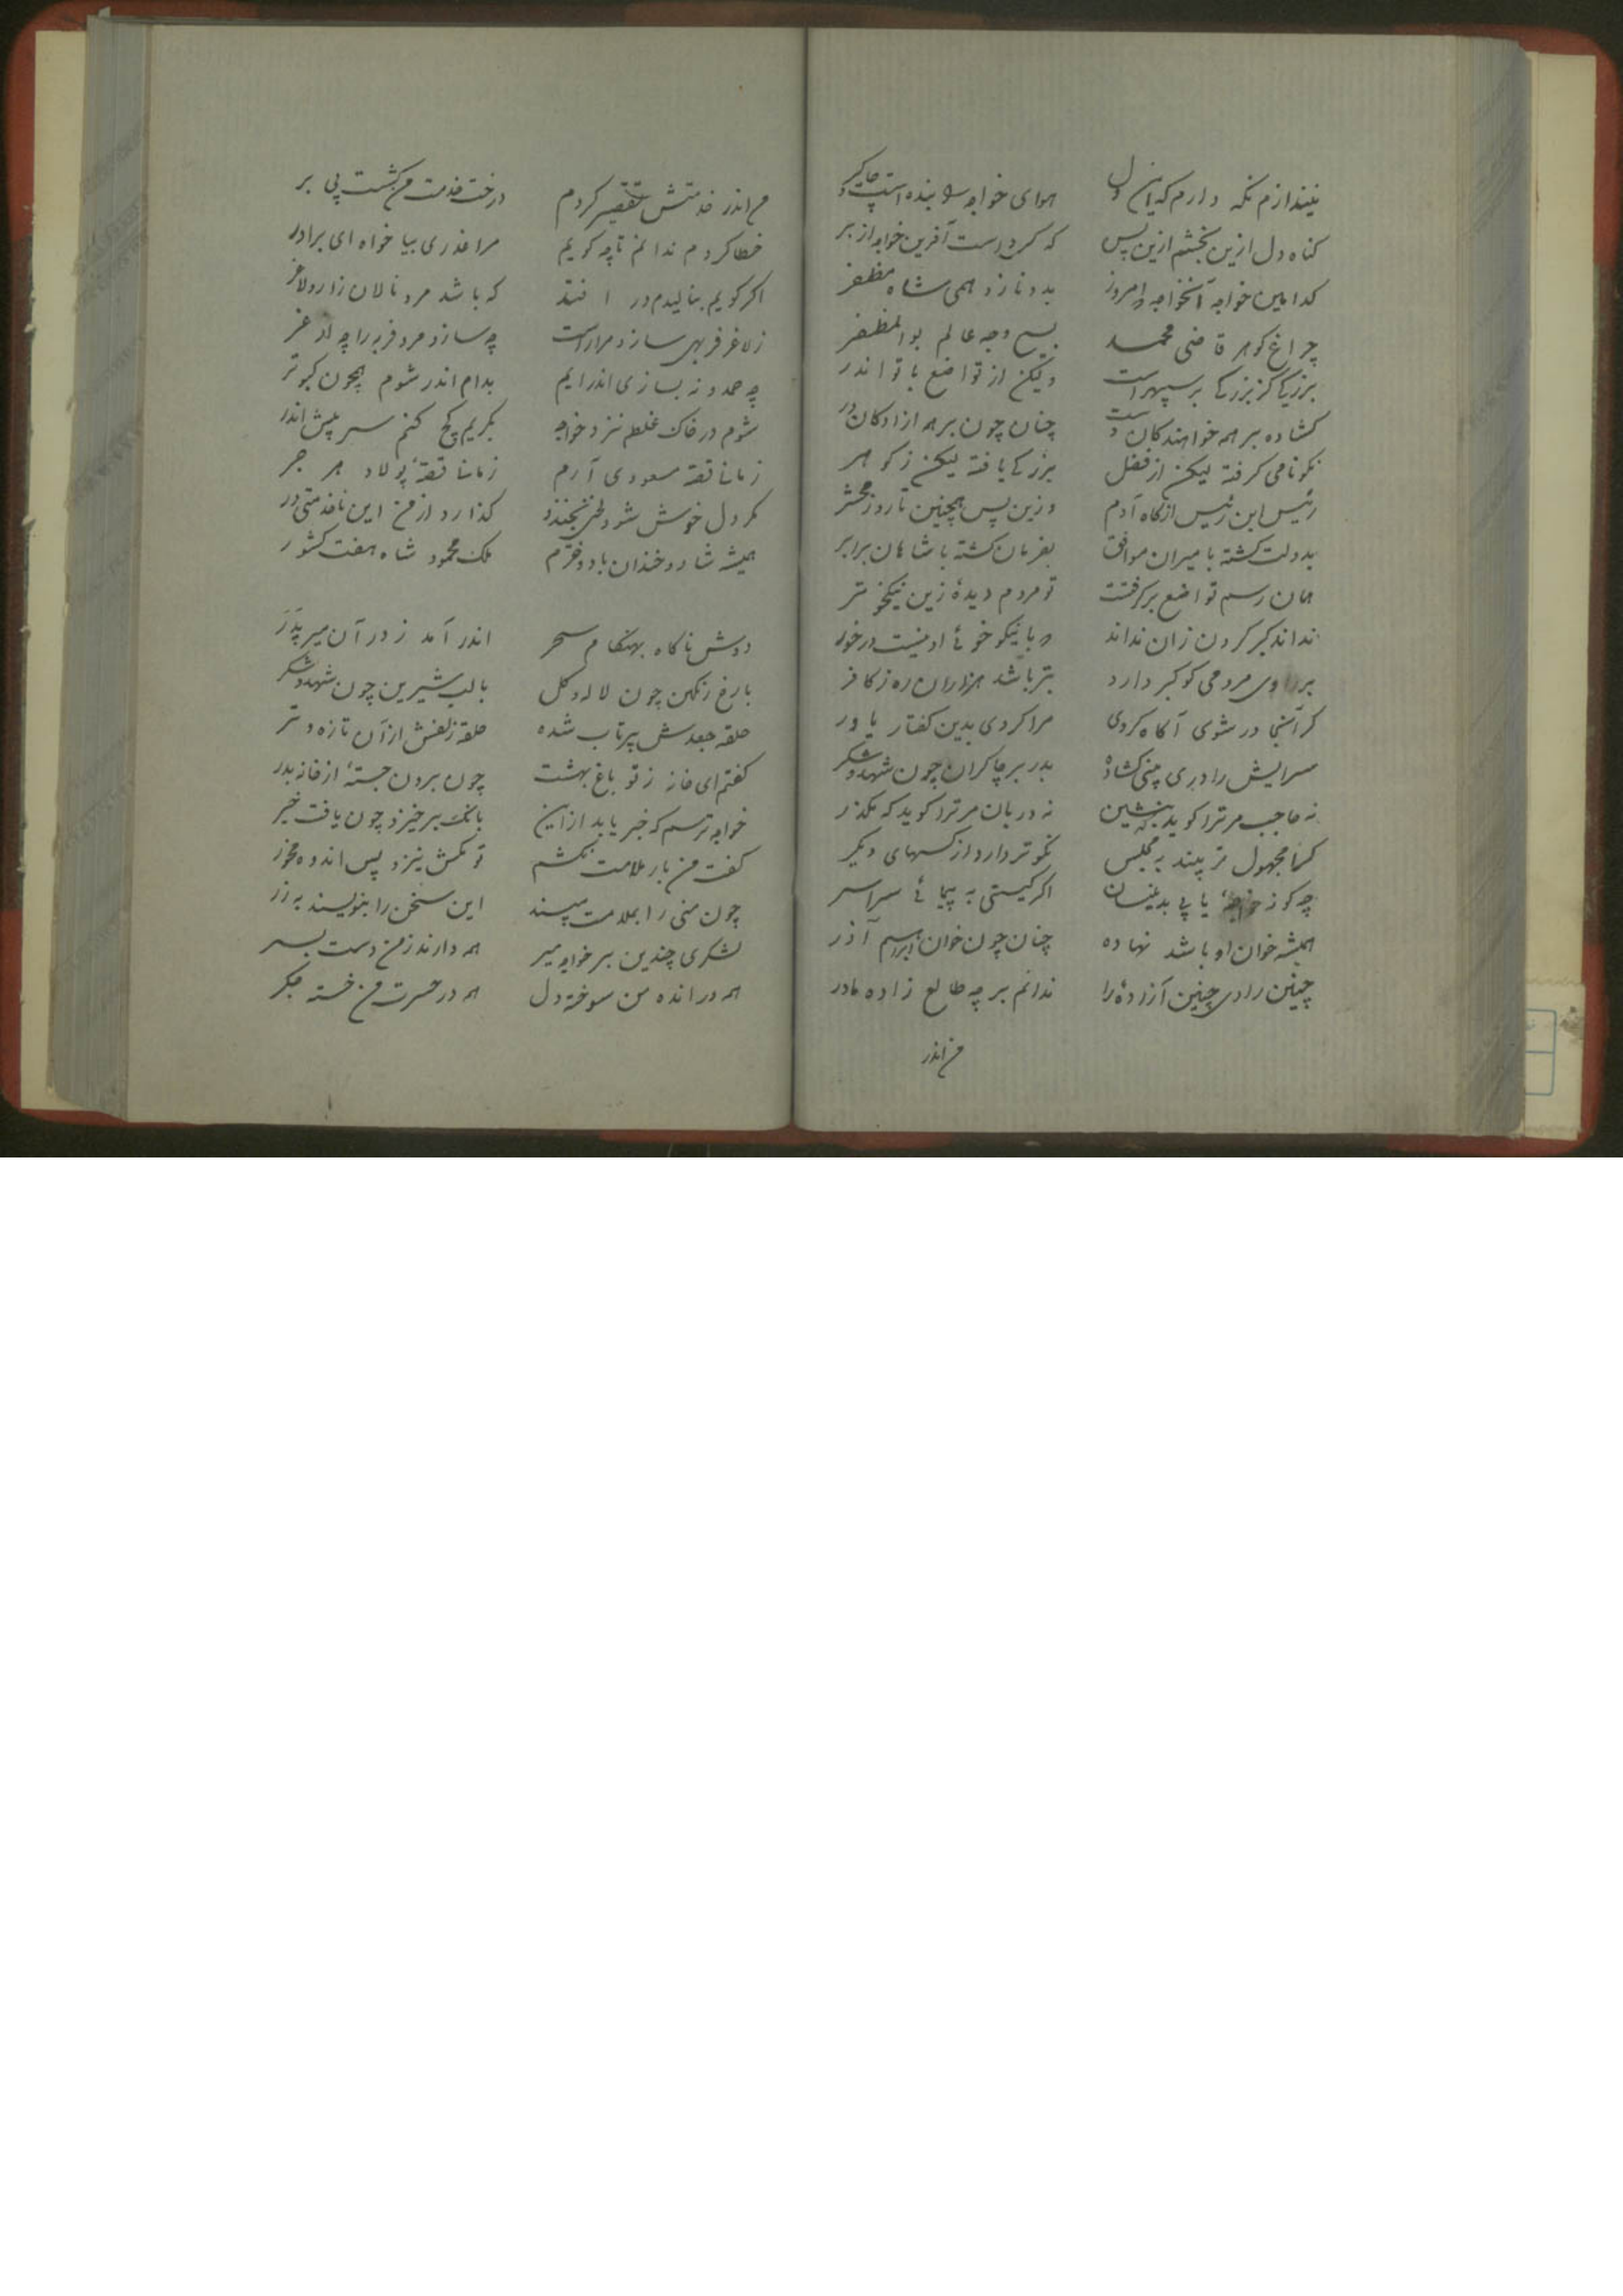 نیندازم نگه دارم که این دل هوای خواجه را بنده است و چاکر
گناه دل ازین بخشم ازین پس که کرد است آفرین خواجه از بر
کدامین خواجه آنخواجه که امروز بدو نازد همی شاه مظفر
چراغ گوهر قاضی محمد بسیج وجه عالم بوالمظفر
بزرگی کز بزرگی بر سپهر است ولیکن از تواضع با تو اندر
گشاده بر همه خواهندگان دست چنان چون بر همه ازادگان در
نکونامی گرفته لیکن از فضل بزرگی یافته لیکن ز گوهر
رئیس ابن رئیس از گاه آدم وزین پس همچنین تا روز محشر
بدولت گشته با میران موافق بفرمان گشته با شاهان برابر
همان رسم تواضع برگرفتت تو مردم دیدهٔ زین نیکخوتر
نداند کبر کردن زان نداند که با نیکو خوئی او نیست درخور
بر اوی مردمی کو کبر دارد بتر باشد هزاران ره ز کافر
گر آنی در شوی آگاه کردی مرا کردی بدین گفتار یاور
سرایش را دری بینی گشاده بدر بر چاکران چون شهد و شکر
نه حاجب مر ترا گوید که بنشین نه دربان مر ترا گوید که مگذر
کسا مجهول تر بیند به مجلس نکوتر دارد از کسهای دیگر
چگونه خواجهٔ یابی بدینسان اگر گیتی به پیمائی سراسر
همیشه خوان او باشد نهاده چنان چون خوان ابراهیم آذر
چنین رادی چنین آزادهٔ را ندانم بر چه طالع زاده مادر
من اندر
من اندر خدمتش تقصیر کردم درخت خدمت من گشت بی بر
خطا کردم ندانم تا چه گویم مرا عذری بیا خواه ای برادر
اگر گویم بنالیدم در افتد که باشد مرد نالان زار و لاغر
ز لاغر فربهی سازد مرا راست چه سازد مرد فربه را چه لاغر
چه صد و نه بسازی اندر ایم بدام اندر شوم همچون کبوتر
شوم در خاک غلطم نزد خواجه بگریم کج کنم سر پیش اندر
زمانا قصهٔ مسعودی آرم زمانا قصهٔ پولاد هر جر
مگر دل خوش شود لختی بخندد گذارد از من این ناخدمتی در
همیشه شاد و خندان باد و خرم ملک محمود شاه هفت کشور
دوش ناگاه بهنگام سحر اندر آمد ز در آن میر پدر
با رخ رنگین چون لاله و گل با لب شیرین چون شهد و شکر
حلقه جعدش پرتاب شده حلقه زلفش از آن تازه و تر
گفتم ای خانه ز تو باغ بهشت چون برون جستهٔ از خانه بدر
خواجه ترسم که خبر یابد ازین بانگ برخیزد چون یافت خبر
گفت من بار ملامت بکشم تو مکش نیزد پس انده مخور
چون منی را بملامت مپسند این سخن را بنویسند به زر
لشکری چندین بر خواجه میر همه دارند ز من دست بسر
همه در انده من سوخته دل همه در حسرت من خسته جگر